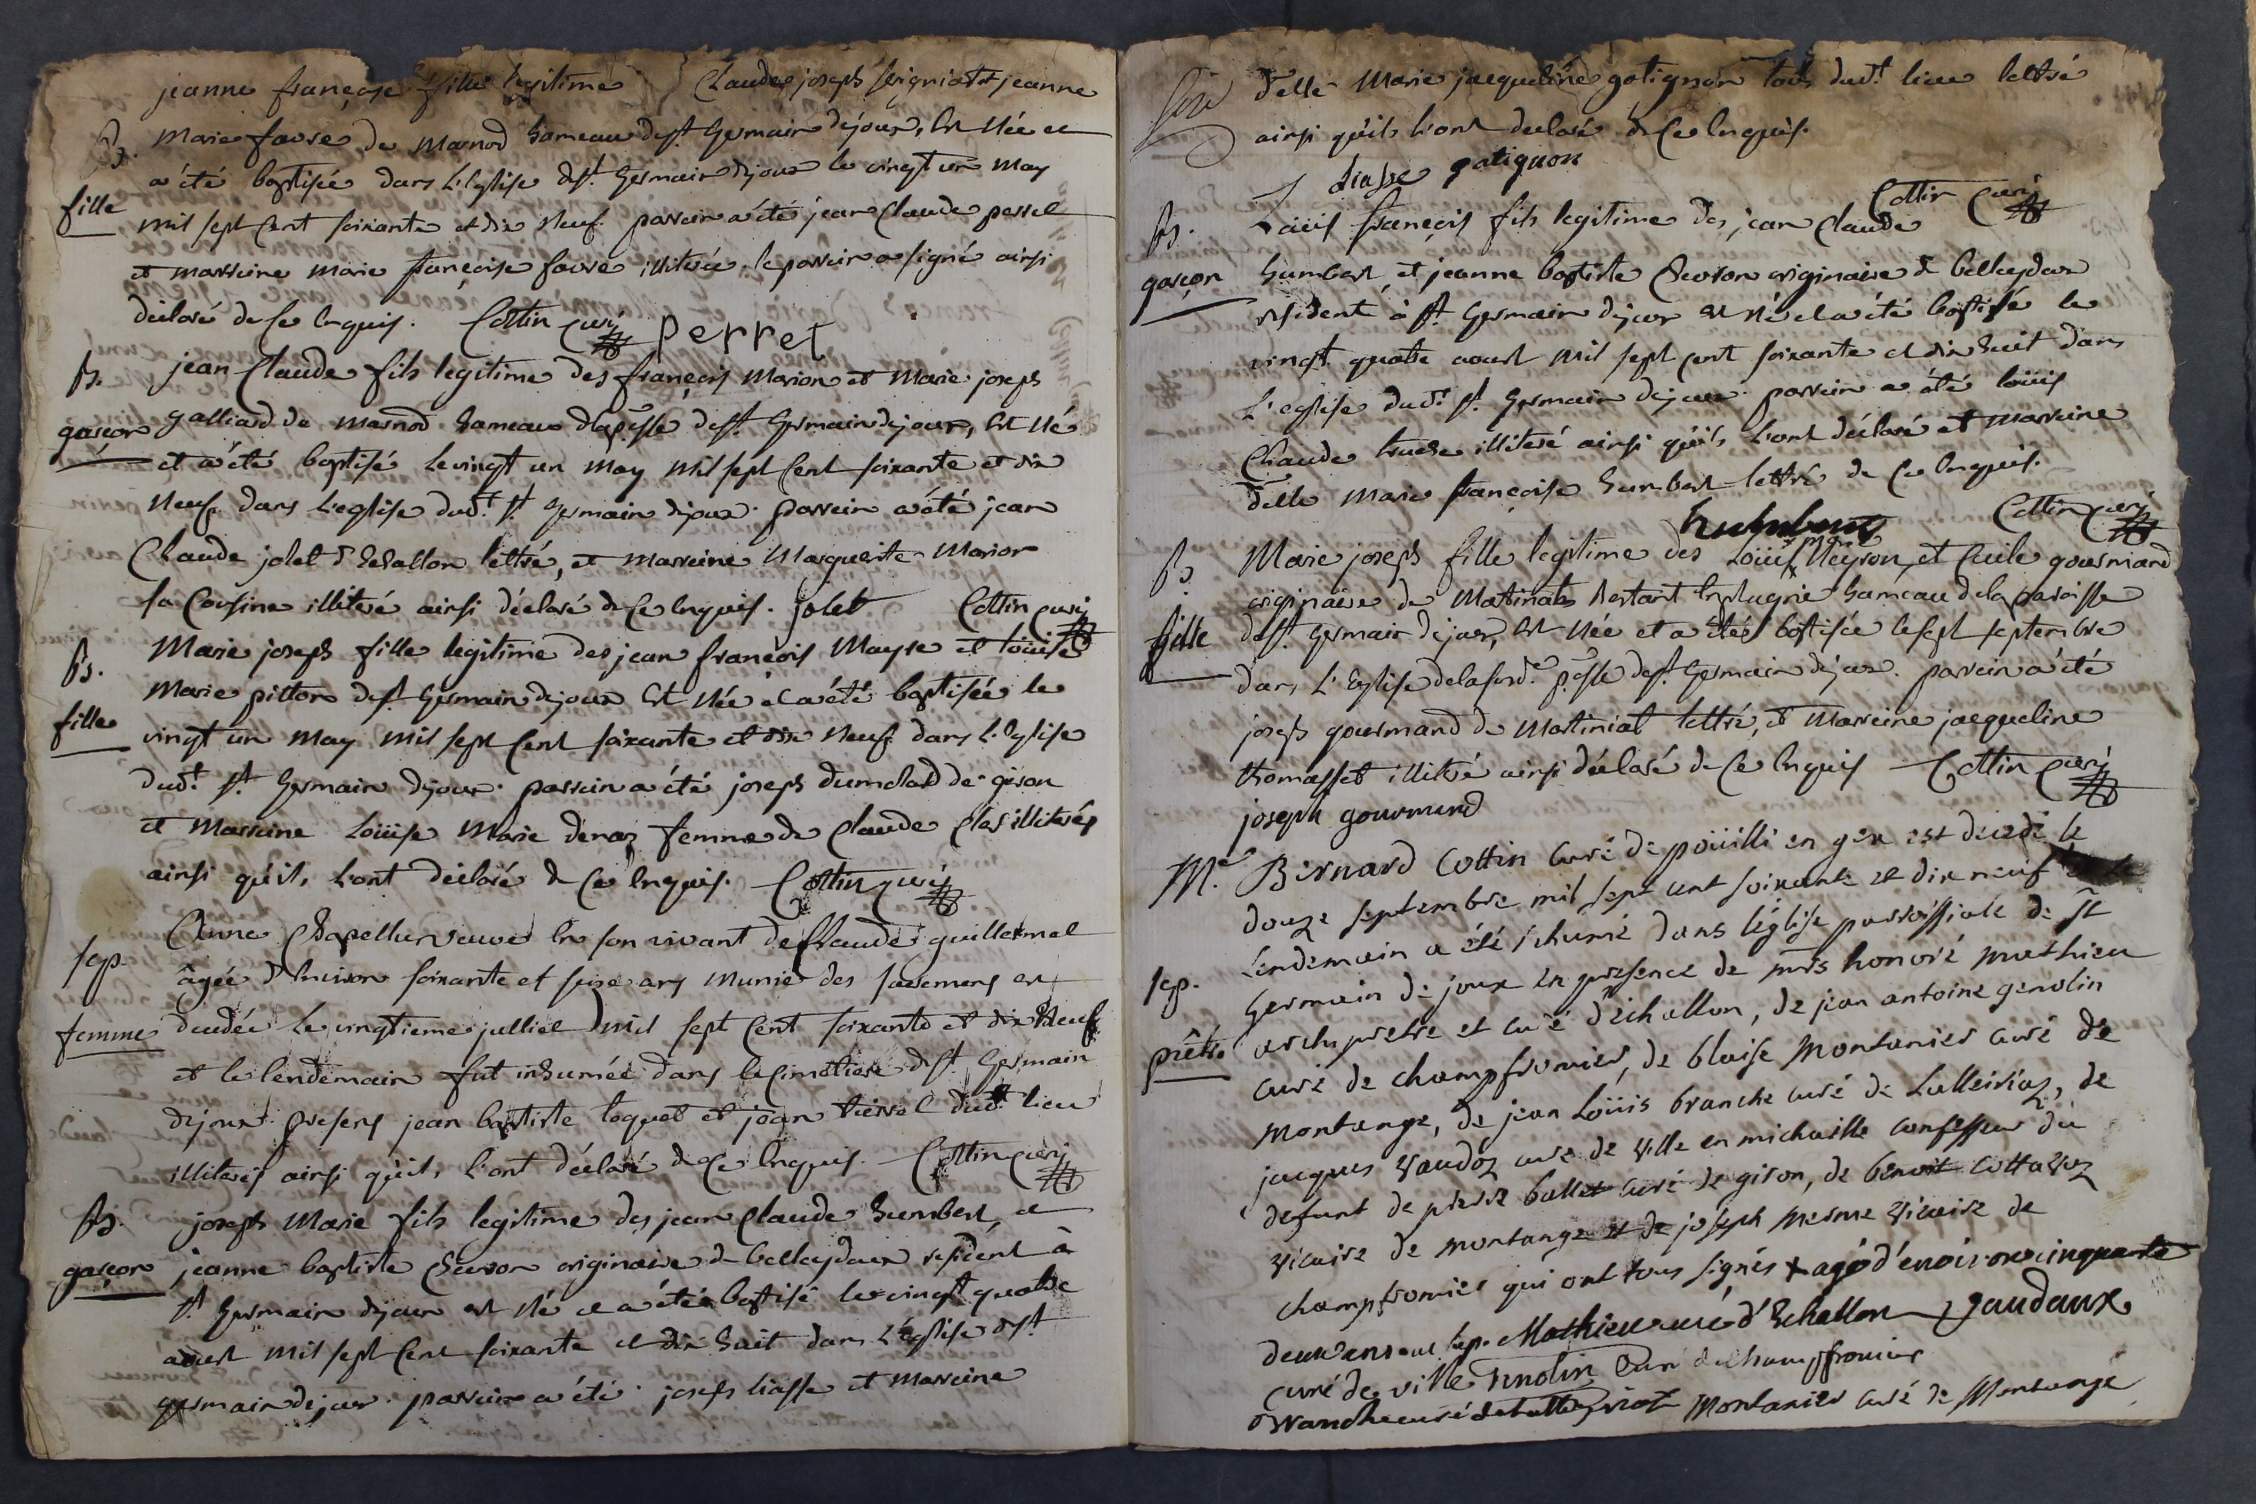 jeanne françoise fille legitime Claude joseph et jeanne
marie favre de marnod hameau de st Germain dejoux, est née et
B.
a été baptisée dans L'Eglise de st Germain dejoux le vingt un may
fille
mil sept cent soixante et dix neuf. parrain a été jean Claude perret
et marreine marie françoise favre illiterée. le parrain a signé ainsi
déclaré de ce enquis. Cottin curé perret
B. jean Claude fils legitime des françois Marion et Marie joseph
garçon galliard de marnod hameau de la psse de st Germain dejoux, est né
et a été baptisé le vingt un may mil sept cent soixante et dix
neuf dans L'eglise dudt st Germain dejoux. parrein a été jean
Claude jolet d'Echallon lettré, et marreine Marguerite Marion
sa cousine illiterée ainsi déclaré de ce enquis. jolet Cottin curé
B. Marie joseph fille legitime des jean françois Mayre et Loüise
Marie pitton de st Germain dejoux est née et a été baptisée le
fille vingt un may mil sept cent soixante et dix neuf dans L'Eglise
dudt st Germain dejoux. parrein a été joseph dumolard de giron
et Marreine Loüise Marie denaz femme de Claude Clas illiterés
ainsi qu'ils l'ont déclaré de ce enquis. Cottin curé
Anne Chapellu veuve en son vivant de Claude guillermet
sep.
âgée d'environ soixante et seize ans munie des sacremens est
femme decedée le vingtieme julliet mil sept cent soixante et dix neuf
et le lendemain fut inhumée dans le cimetiere de st Germain
dejoux. presens jean baptiste toquet et jean tissot dudt lieu
illiterés ainsi qu'ils l'ont déclaré de ce enquis. Cottin curé
B. joseph Marie fils legitime des jean Claude humbert, et
garçon jeanne baptiste Chevron originaire de belleydoux resident à
st Germain dejoux est né et a été baptisé le vingt quatre
aoust mil sept cent soixante et dix huit dans L'église de st
germain dejoux. parrein a été joseph liasse et marreine
delle Marie jacqueline gotignon tous dudt lieu lettré
ainsi qu'ils l'ont declaré de ce enquis.
J liasse gatignon Cottin curé
B. Loüis françois fils legitime des jean Claude
garçon humbert, et jeanne baptiste Chevron originaire de belleydoux
resident à st Germain dejoux est né et a été baptisé le
vingt quatre aoust mil sept cent soixante et dix huit dans
L'eglise dudt st Germain dejoux. parrein a été loüis
Claude illiteré ainsi qu'ils l'ont déclaré et marreine
delle Marie françoise humbert lettré de ce enquis.
humbert Cottin curé
B. Marie joseph fille legitime des Loüis Marie Neyron, et Cecile gourmand
originaire de Martinat restant hameau de la paroisse
fille de st Germain dejoux, est née et a été baptisée le sept septembre
dans L'Eglise de la susde psse de st Germain dejoux. parrein a été
joseph gourmand de Martiniat lettré, et Marreine jacqueline
thomasset illiteré ainsi déclaré de ce enquis Cottin curé
joseph gourmand
Me Bernard Cottin curé de poüilli en gex est decedé le
douze septembre mil sept cent soixante et dix neuf et le
Lendemain a été inhumé dans léglise parroissiale de st
sep. Germain de joux en presence de mrs honoré mathieu
prêtre archiprêtre et curé d'échallon, de jean antoine genolin
curé de champfromier, de blaise montanier curé de
montange, de jean Loüis branche curé de Lalleiriaz, de
jacques vaudoz curé de ville en michaille confesseur du
defunt de pierre ballet curé de giron, de benoit cottavoz
vicaire de montange et de joseph merme vicaire de
champfromier qui ont tous signés + agé d'environ cinquante
deux ans Mathieu curé d'Echallon gaudaux
curé de ville Genolin Curé de Champfromier
Branche curé de Lalleyriat Montanier curé de Montange